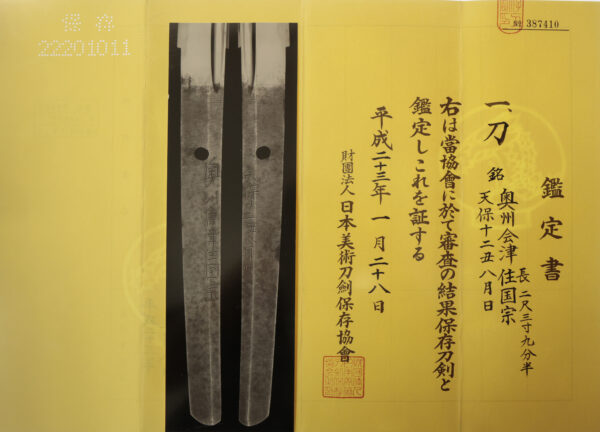 保存
22201011
No 387410
鑑定書
一、刀
銘 奥州会津住国宗
長二尺三寸九分半
天保十二丑八月日
右は當協會に於て審査の結果保存刀剣と
鑑定しこれを証する
平成二十三年一月二十八日
財團法人日本美術刀劍保存協會